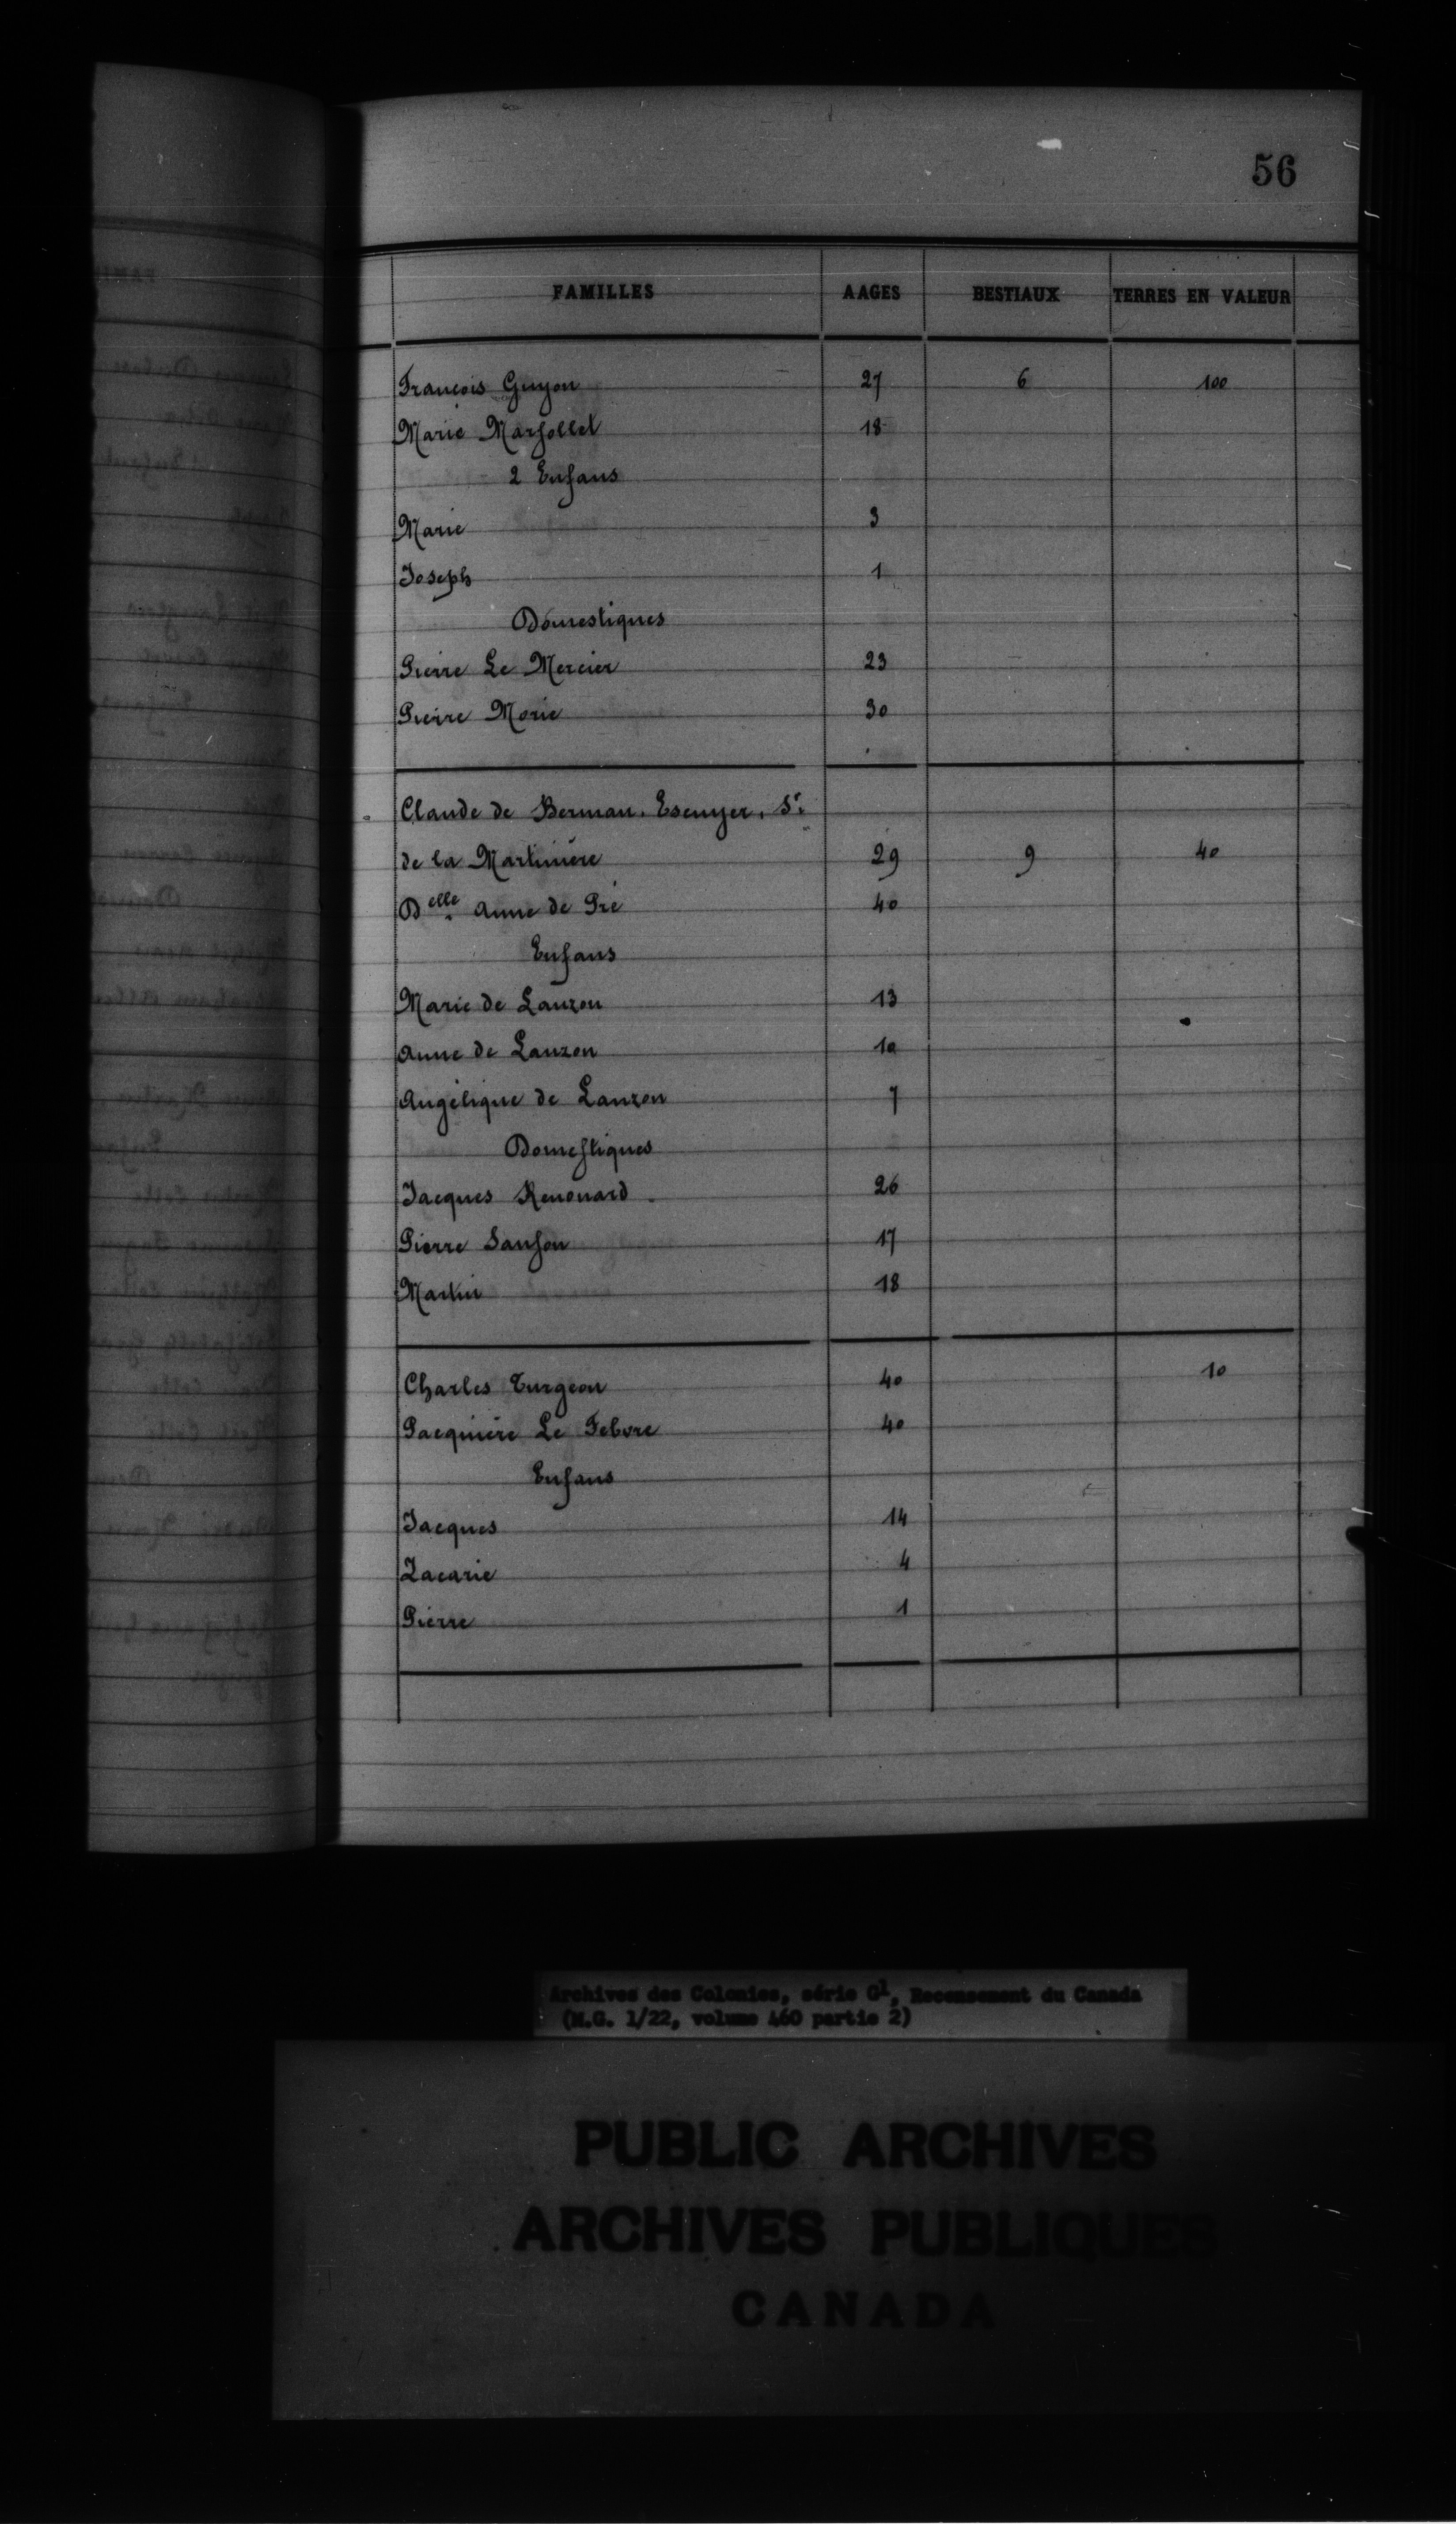 56
FAMILLES AAGES BESTIAUX TERRES EN VALEUR
Francois Guyon 27 6 100
Marie Marsollet 18
2 Enfans
Marie 3
Joseph 1
Domestiques
Pierre Le Mercier 23
Pierre Morie 30
Claude de Berman, Escuyer, Sr.
de la Martinière 29 9 40
Delle Anne de Pré 40
Enfans
Marie de Lauzon 13
Anne de Lauzon 10
Angélique de Lauzon 7
Domestiques
Jacques Renouard 26
Pierre Sanson 17
Martin 18
Charles Turgeon 40 10
Pacquière Le Febvre 40
Enfans
Jacques 14
Zacarie 4
Pierre 1
Archives des Colonies, série G1, Recensement du Canada
(M.G. 1/22, volume 460 partie 2)
PUBLIC ARCHIVES
ARCHIVES PUBLIQUES
CANADA